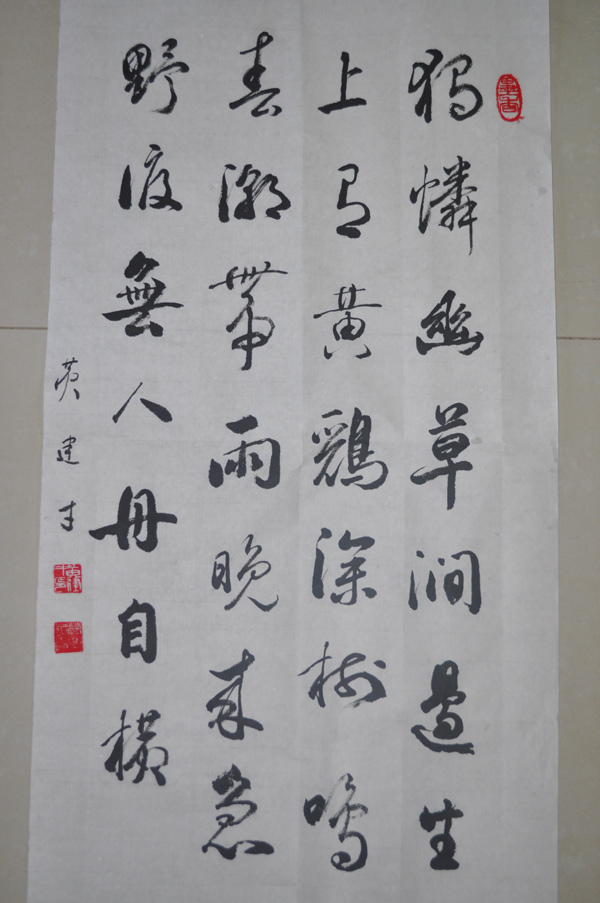 獨憐幽草澗邊生
上有黃鸝深樹鳴
春潮帶雨晚來急
野渡無人舟自橫
黄建才